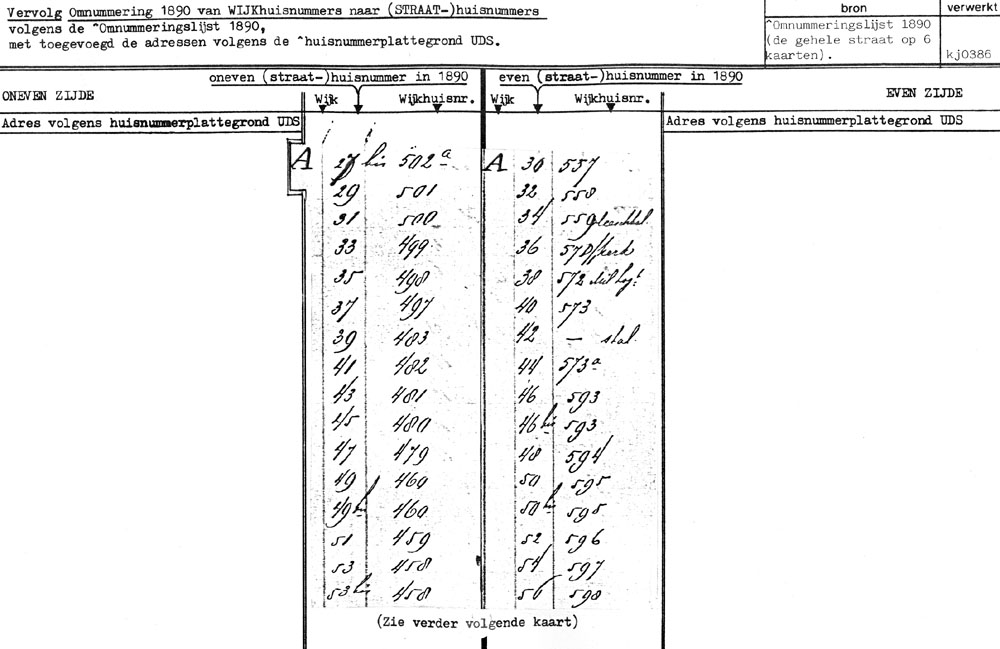 Vervolg Omnummering 1890 van WIJKhuisnummers naar (STRAAT-)huisnummers
volgens de ^Omnummeringslijst 1890,
met toegevoegd de adressen volgens de ^huisnummerplattegrond UDS.
bron
verwerkt
^Omnummeringslijst 1890
(de gehele straat op 6
kaarten).
kj0386
oneven (straat-)huisnummer in 1890
even (straat-)huisnummer in 1890
ONEVEN ZIJDE
Wijk Wijkhuisnr.
Wijk Wijkhuisnr.
EVEN ZIJDE
Adres volgens huisnummerplattegrond UDS
Adres volgens huisnummerplattegrond UDS
A 27 bis 502a A 30 557
29 501 32 558
31 500 34 559
33 499 36 571 kerk
35 498 38 572
37 497 40 573
39 483 42 — stal
41 482 44 573a
43 481 46 593
45 480 46 bis 593
47 479 48 594
49 460 50 595
49 bis 460 50 bis 595
51 459 52 596
53 458 54 597
53 bis 458 56 598
(Zie verder volgende kaart)